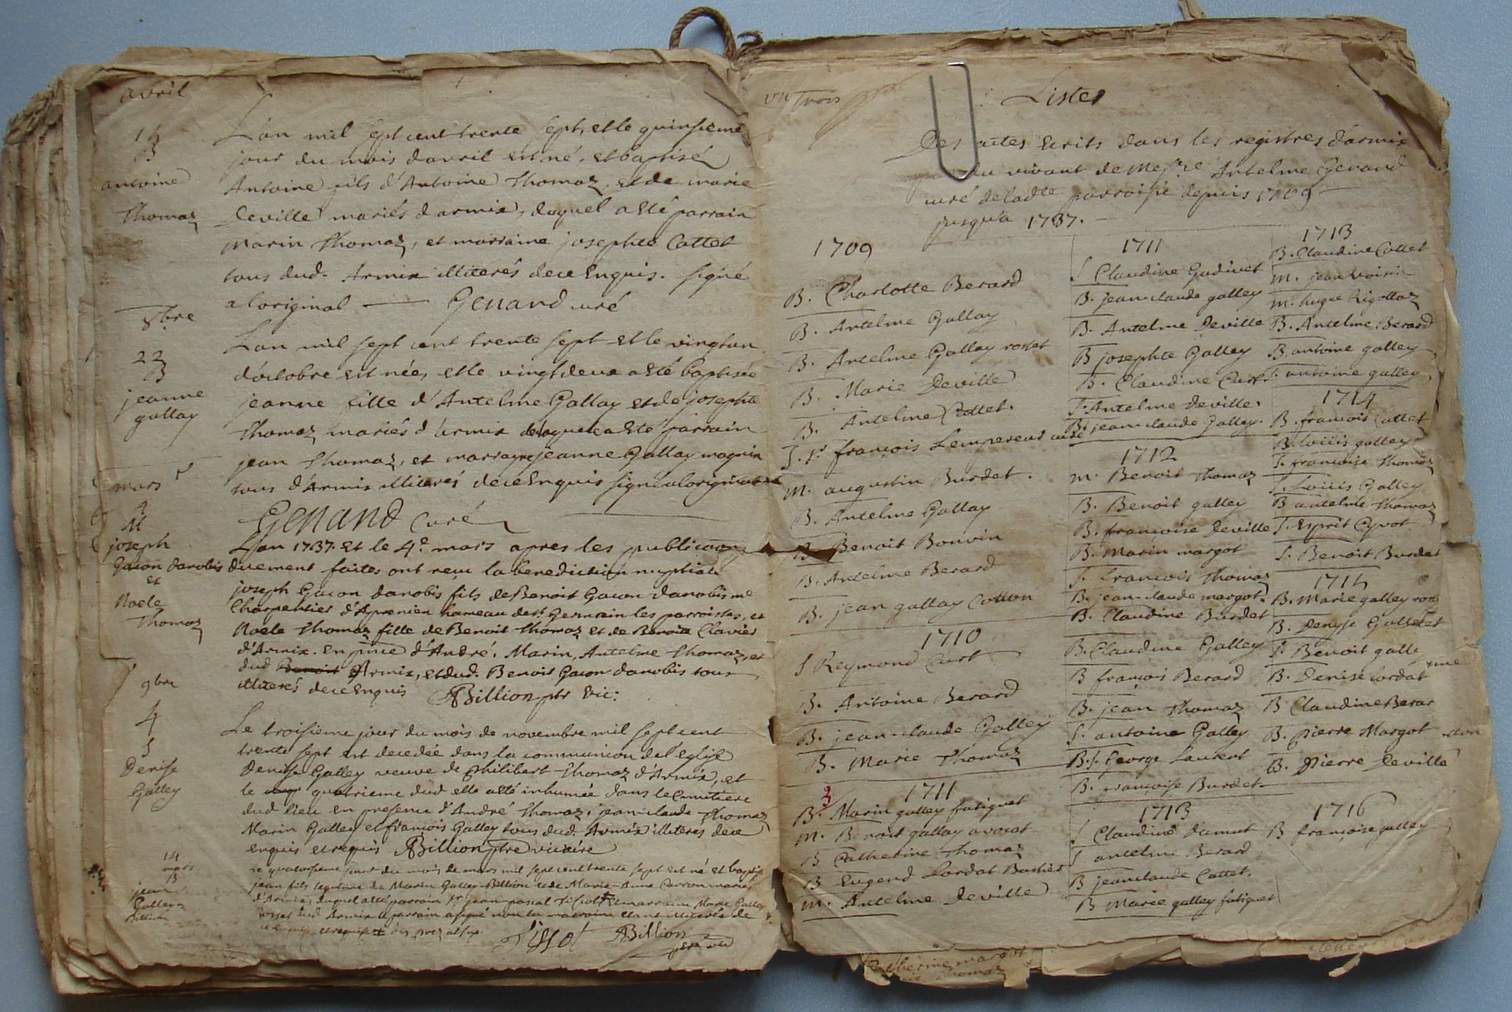 avril
15
B
antoine
Thomaz
L'an mil sept cent trente sept, et le quinsieme
jour du mois d'avril est né, et baptisé
Antoine fils d'Antoine Thomaz, et de marie
Deville mariés d'armix, duquel a esté parrain
Marin Thomaz, et marraine josephte Cottet
tous dud. Armix illiterés de ce Enquis. signé
a l'original Genand curé
8bre
22
B
jeanne
gallay
L'an mil sept cent trente sept et le vingt un
d'octobre est née, et le vingt deux a esté baptisée
jeanne fille d'Antelme Gallay et de josephte
Thomaz mariés d'armix de laquelle a esté parrain
jean Thomaz, et marrayne jeanne Gallay magnin
tous d'Armix illiterés de ce Enquis signé a l'original
Genand Curé
mars
4
M
joseph
Gacon danobis
et
Noele
Thomaz
L'an 1737 et le 4e mars apres les publications
duement faites ont reçu la benediction nuptiale
joseph Gacon danobis fils de Benoit Gacon danobis me
Charpentier d'Aprenieu hameau de St Germain les parroisses, et
Noele Thomaz fille de Benoit Thomaz et de Benoite Clavier
d'Armix. En pnce d'André, Marin, Antelme Thomaz, et
dud Armix, et dud. Benoit Gacon danobis tous
illiterés de ce Enquis Billion ptr vic:
9bre
4
S
Denise
Galley
Le troisieme jour du mois de novembre mil sept cent
trente sept est decedée dans la communion de l'Eglise
Denise Galley veuve de Philibert Thomaz d'Armix, et
le quatrieme dud elle a esté inhumée dans le Cimetiere
dud lieu en presence d'André Thomaz, jean-claude Thomaz
Marin Galley et françois Galley tous dud Armix illiteres de ce
enquis et requis Billion ptre vicaire
14
mars
B
jean
Galley
Billion
le quatorsieme jour du mois de mars mil sept cent trente sept est né et baptisé
jean fils legitime de Marin Galley-Billion et de Marie-Anne mariés
d'Armix, duquel a esté parrain Sr jean pascal Tissot et marraine Marie Galley
dud Armix le parrain a signé non la marraine illiterée de
ce enquis et requis
Tissot Billion
Listes
Des actes Ecrits dans les registres d'armix
du vivant de Messre Antelme Genand
curé de ladte parroisse depuis 1709
jusqu'a 1737.
1709
B. Charlotte Berard
B. Antelme Gallay
B. Antelme Gallay rosset
B. Marie Deville
B. Antelme Cottet.
S. Sr françois Lempereur curé
M. augustin Burdet.
B. Antelme Gallay
B. Benoit Bonvin
B. Antelme Berard
B. jean gallay Cotton
1710
S Reymond Curt
B. Antoine Berard
B. jean-claude Galley
B. Marie Thomaz
3
1711
B. Marin galley fatiguet
M. Benoit gallay avocat
B Catherine Thomaz
B Eugend Lordat
M. Antelme Deville
1711
S Claudine Gudivet
B. jean-claude galley
B. Antelme Deville
B josephte Galley
B. Claudine Curt
S. Antelme Deville.
B. jean-claude Galley.
1712
M. Benoit Thomaz
B. Benoit galley
B. françoise Deville
B. Marin margot
S. françois Thomaz
B. jean-claude margot.
B. Claudine Burdet
B. Claudine Galley
B françois Berard
B. jean Thomaz
S. antoine Galley
B. S. George Laurent
B. françoise Burdet
1713
S Claudine dumut
S antelme Berard
B jean claude Cottet.
B Marie galley fatiguet
1713
B. Claudine Cottet
M. jean Voisin
M. hugue Rigottaz
B. Antelme Berard
B antoine galley
S. antoine galley
1714
B. francois Cottet
B. Louis galley
S. francoise Thomaz
S. Louis Galley
B antelme Thomaz
S. Esprit Cyvot
S. Benoit Burdet
1715
B. Marie galley
B. Denyse Galley
S. Benoit galle
B. Denise Lordat
B Claudine Berar
B. Pierre Margot
B. Pierre Deville
1716
B françoise galley
Catherine margot
Thomaz